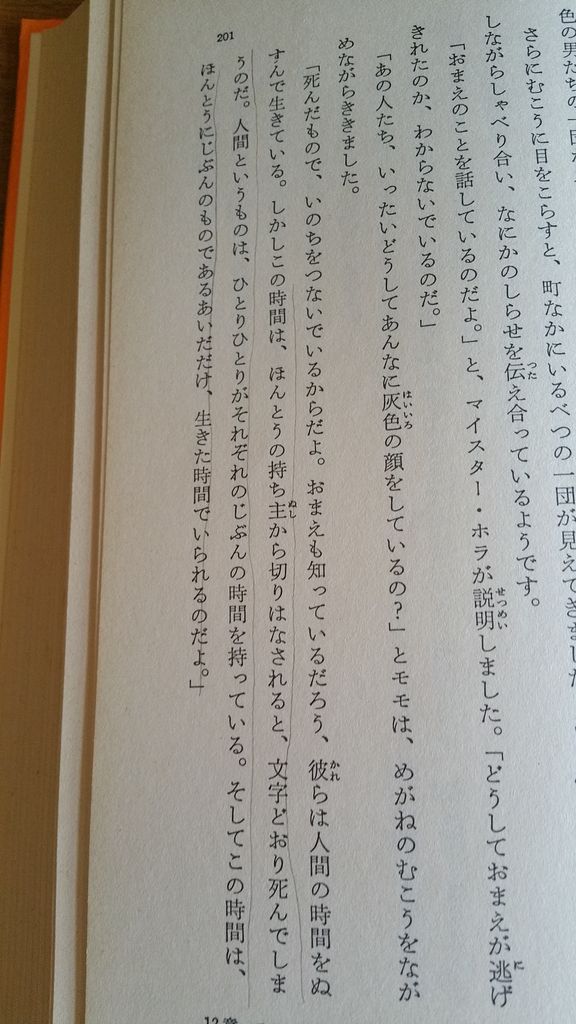 色の男たちの一団が
さらにむこうに目をこらすと、町なかにいるべつの一団が見えてきました
しながらしゃべり合い、なにかのしらせを伝え合っているようです。
「おまえのことを話しているのだよ。」と、マイスター・ホラが説明しました。「どうしておまえが逃げ
きれたのか、わからないでいるのだ。」
「あの人たち、いったいどうしてあんなに灰色の顔をしているの?」とモモは、めがねのむこうをなが
めながらききました。
「死んだもので、いのちをつないでいるからだよ。おまえも知っているだろう、彼らは人間の時間をぬ
すんで生きている。しかしこの時間は、ほんとうの持ち主から切りはなされると、文字どおり死んでしま
うのだ。人間というものは、ひとりひとりがそれぞれのじぶんの時間を持っている。そしてこの時間は、
ほんとうにじぶんのものであるあいだだけ、生きた時間でいられるのだよ。」
201
12章